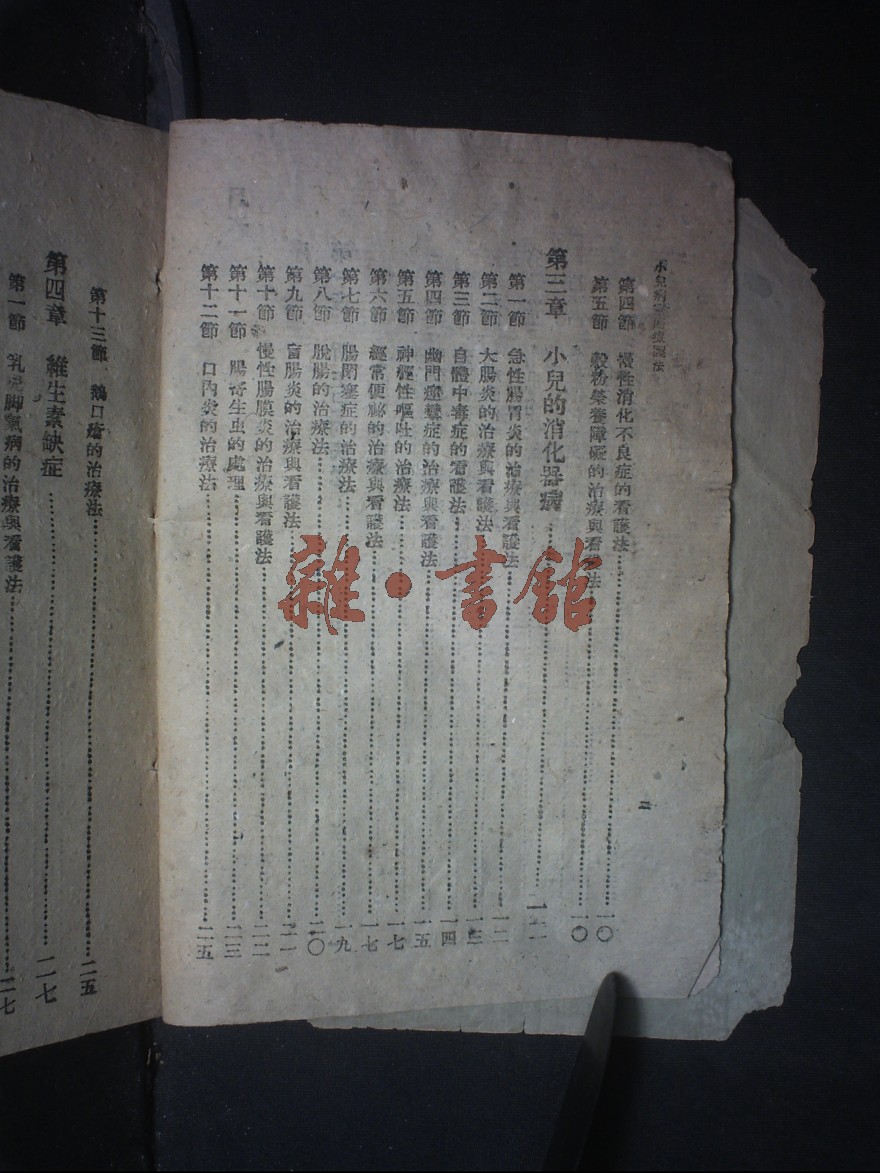 小兒病家庭治護法
第四節 慢性消化不良症的看護法 一〇
第五節 穀粉榮養障礙的治療與看護法 一〇
第三章 小兒的消化器病 一二
第一節 急性腸胃炎的治療與看護法 一二
第二節 大腸炎的治療與看護法 一三
第三節 自體中毒症的看護法 一四
第四節 幽門痙攣症的治療與看護法 一五
第五節 神經性嘔吐的治療法 一七
第六節 經常便祕的治療與看護法 一七
第七節 腸閉塞症的治療法 一九
第八節 脫腸的治療法 二〇
第九節 盲腸炎的治療與看護法 二一
第十節 慢性腸膜炎的治療與看護法 二二
第十一節 腸寄生虫的處理 二三
第十二節 口內炎的治療法 二五
二
第十三節 鵝口瘡的治療法 二五
第四章 維生素缺症 二七
第一節 乳兒脚氣病的治療與看護法 二七
雜·書館